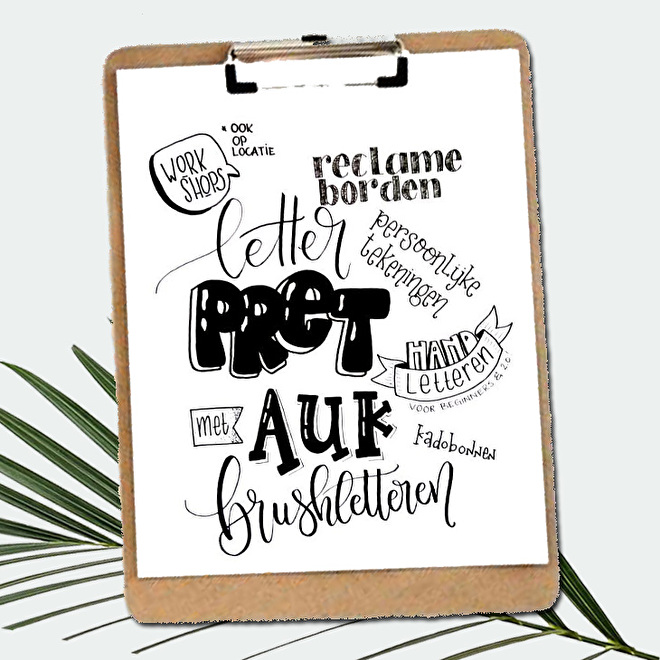 * OOK
OP
LOCATIE
WORK
SHOPS
reclame
borden
letter
persoonlijke
tekeningen
PRET
HAND
Letteren
VOOR BEGINNERS & 2.0!
met
AUK
kadobonnen
brushletteren